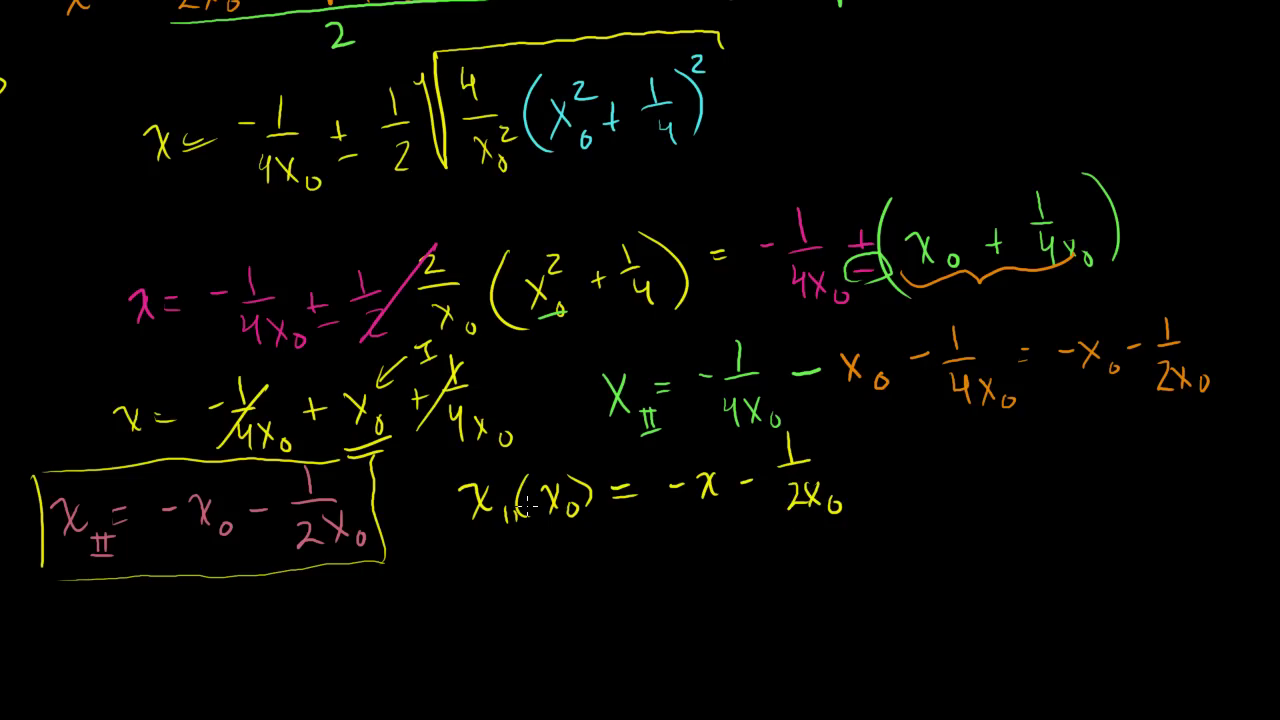 2
x = -1/4x₀ ± 1/2 √(4/x₀² (x₀² + 1/4)²)
x = -1/4x₀ ± 1/2 2/x₀ (x₀² + 1/4) = -1/4x₀ ± (x₀ + 1/4x₀)
I
x = -1/4x₀ + x₀ + 1/4x₀
x_II = -1/4x₀ - x₀ - 1/4x₀ = -x₀ - 1/2x₀
x_II = -x₀ - 1/2x₀
x_II(x₀) = -x - 1/2x₀